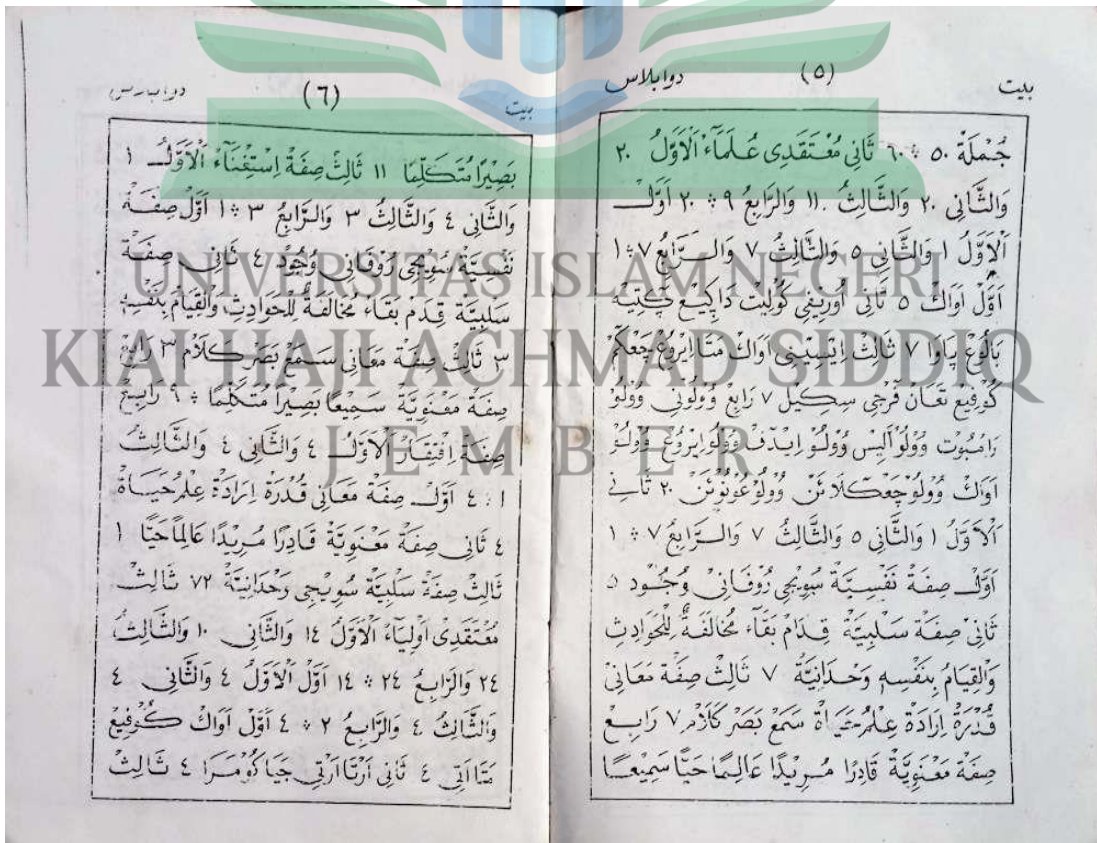 بيت (٥) دوابلاس
جُمْلَةْ ٥٠ ÷ ٦٠ ثَانِى مُعْتَقَدِى عُلَمَآءْ اَلْاَوَّلُ ٢٠
وَالثَّانِى ٢٠ وَالثَّالِثُ ١١ وَالرَّابِعُ ٩ ÷ ٢٠ اَوَّلْ
اَلْاَوَّلُ ١ وَالثَّانِى ٥ وَالثَّالِثُ ٧ وَالرَّابِعُ ٧ ÷ ١
اَوَّلْ اَوَاكْ ٥ ثَانِى اُورِيڤَى كُوْلِيتْ دَاڮِيڠْ ڮَتِيْه
بَالُوڠْ ٧ ثَالِثْ اَوَاكْ مَتَا اِيْرُوڠْ چَڠْكَمْ
كُوڤِيڠْ تَڠَانْ فَرْجِى سِكِيلْ ٧ رَابِعْ وُوْلُوْنَى وُوْلُوْ
رَامْبُوتْ وُوْلُوْ اَلِيسْ وُوْلُوْ اِيْدَفْ وُوْلُوْ اِيْرُوڠْ وُوْلُوْ
اَوَاكْ وُوْلُوْ وُوْلُوْ ٢٠ ثَانِى
اَلْاَوَّلُ ١ وَالثَّانِى ٥ وَالثَّالِثُ ٧ وَالرَّابِعُ ٧ ÷ ١
اَوَّلْ صِفَةْ نَفْسِيَّةْ سُوِيْجِى رُوْڤَانَى وُجُوْد ٥
ثَانِى صِفَةْ سَلْبِيَّةْ قِدَامْ بَقَاءْ مُخَالَفَةُ لِلْحَوَادِثِ
وَالْقِيَامُ بِنَفْسِهِ وَحْدَانِيَّةُ ٧ ثَالِثْ صِفَةْ مَعَانِى
قُدْرَةْ اِرَادَةْ عِلْمْ حَيَاةْ سَمَعْ بَصَرْ كَلَامْ ٧ رَابِعْ
صِفَةْ مَعْنَوِيَّةْ قَادِرًا مُرِيْدًا عَالِمًا حَيًّا سَمِيْعًا
بيت (٦) دوابلاس
بَصِيْرًا مُتَكَلِّمًا ١١ ثَالِثْ صِفَةْ اِسْتِغْنَآءْ اَلْاَوَّلُ ١
وَالثَّانِى ٤ وَالثَّالِثُ ٣ وَالرَّابِعُ ٣ ÷ ١ اَوَّلْ صِفَةْ
نَفْسِيَّةْ سُوِيْجِى رُوْڤَانَى وُجُوْدْ ٤ ثَانِى صِفَةْ
سَلْبِيَّةْ قِدَمْ بَقَاءْ مُخَالَفَةُ لِلْحَوَادِثِ وَالْقِيَامُ بِنَفْسِهِ
٣ ثَالِثْ صِفَةْ مَعَانِى سَمَعْ بَصَرْ كَلَامْ ٣ رَابِعْ
صِفَةْ مَعْنَوِيَّةْ سَمِيْعًا بَصِيْرًا مُتَكَلِّمًا ÷ ٩ رَابِعْ
صِفَةْ اِفْتِقَارْ اَلْاَوَّلُ ٤ وَالثَّانِى ٤ وَالثَّالِثُ
١ ÷ ٤ اَوَّلْ صِفَةْ مَعَانِى قُدْرَةْ اِرَادَةْ عِلْمْ حَيَاةْ
٤ ثَانِى صِفَةْ مَعْنَوِيَّةْ قَادِرًا مُرِيْدًا عَالِمًا حَيًّا ١
ثَالِثْ صِفَةْ سَلْبِيَّةْ سُوِيْجِى وَحْدَانِيَّةْ ٧٢ ثَالِثْ
مُعْتَقَدِى اَوْلِيَاءْ اَلْاَوَّلُ ١٤ وَالثَّانِى ١٠ وَالثَّالِثُ
٢٤ وَالرَّابِعُ ٢٤ ÷ ١٤ اَوَّلْ اَلْاَوَّلُ ٤ وَالثَّانِى ٤
وَالثَّالِثُ ٤ وَالرَّابِعُ ٢ ÷ ٤ اَوَّلْ اَوَاكْ كُوڤِيڠْ
مَتَا اَتِى ٤ ثَانِى اَرْتَا اَرْتِى ٤ ثَالِثْ
UNIVERSITAS ISLAM NEGERI
KIAI HAJI ACHMAD SIDDIQ
JEMBER